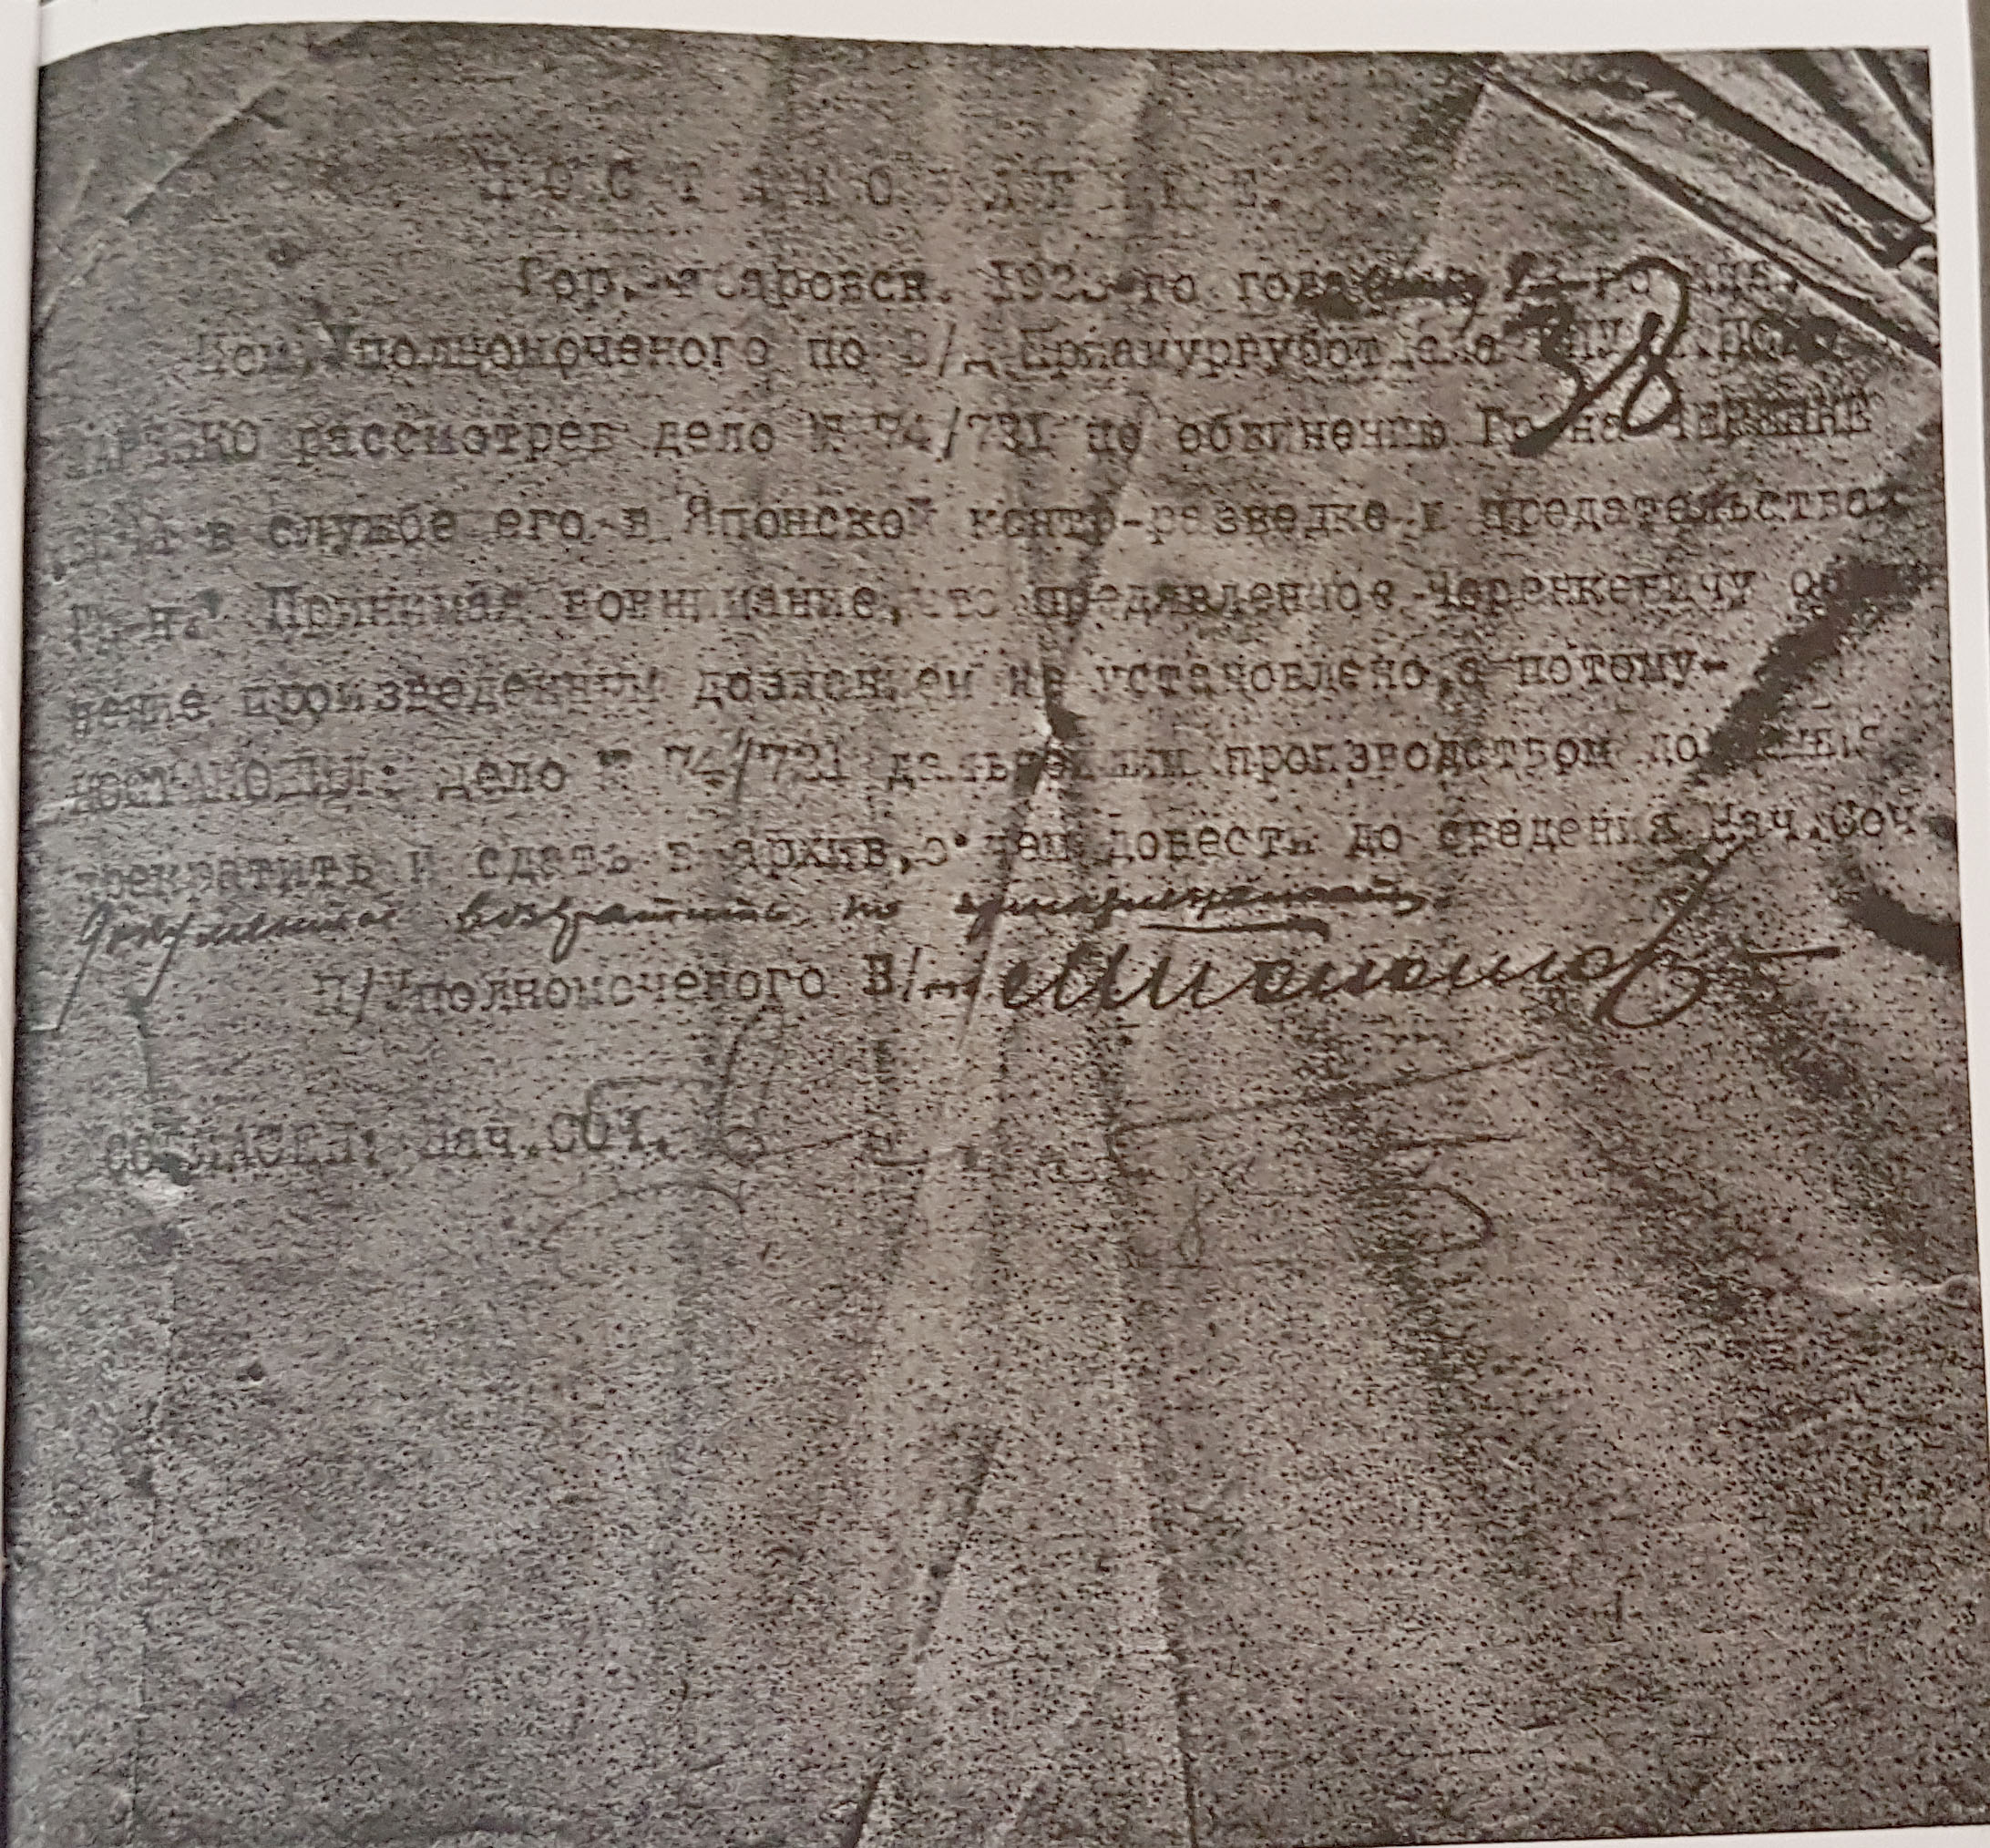 ПОСТАНОВЛЕНИЕ.
38
Гор. 192 -го года
Пом. Уполномоченого по В/Д Приамургуботдела
рассмотрев дело № 74/731 по обвинению Гр-на
в службе его в Японской контр-разведке и предательства
Гр-н. Принимая вовнимание, что предявленное Черенкевичу об
нение произведенным дознанием не установлено, а потому-
ПОСТАНОВИЛ: дело № 74/731 дальнейшим производством дознания
прекратить и сдать в архив, о чем довести до сведения Нач. СОЧ
Документы возвратить по
П/Уполномоченого В/
СОГЛАСЕН: Нач. СОЧ.